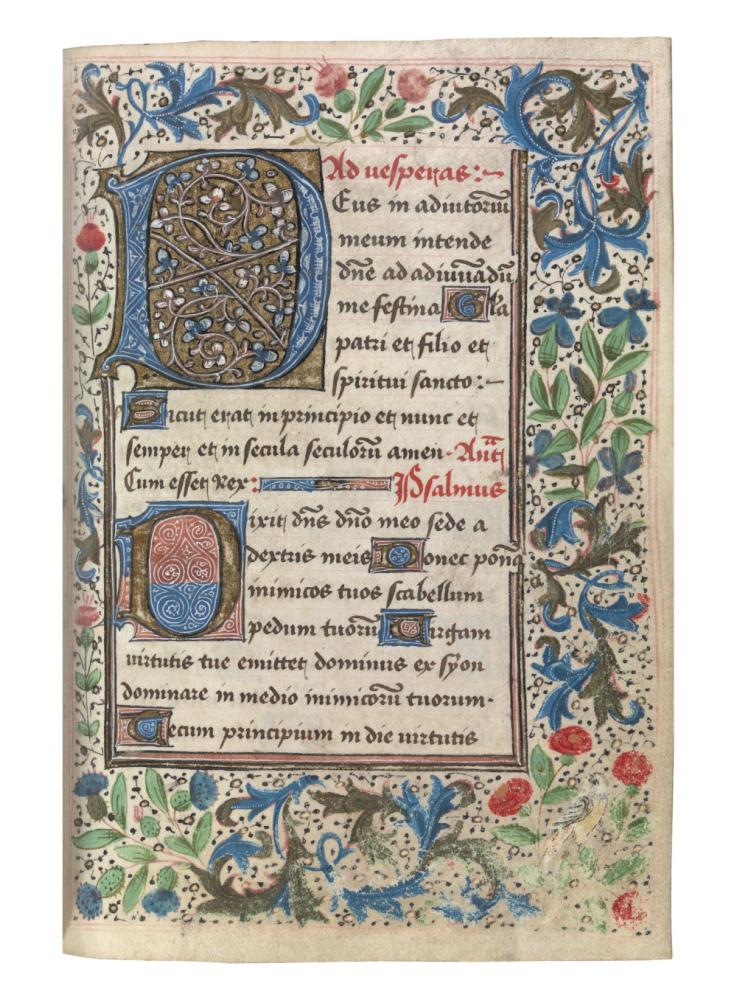 Ad vesperas:~
Deus in adiutoriū
meum intende
dn̄e ad adiuuādū
me festina Gl̄a
patri et filio et
spiritui sancto:~
Sicut erat in principio et nunc et
semper et in secula seculorū amen. Ant̄
Cum esset Rex: Psalmus
Dixit dn̄s dn̄o meo sede a
dextris meis Donec ponā
inimicos tuos scabellum
pedum tuorū Uirgam
uirtutis tue emittet dominus ex syon
dominare in medio inimicorū tuorum.
Tecum principium in die uirtutis